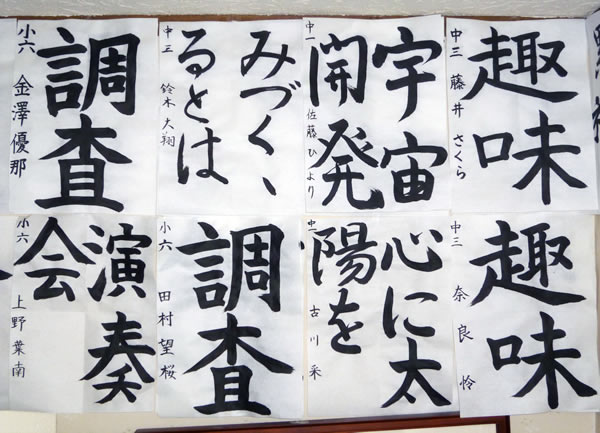 趣味
中三 藤井 さくら
宇宙
開発
中一 佐藤ひより
みづく、
るとは
中三 鈴木大翔
調査
小六 金澤優那
趣味
中三 奈良怜
心に太
陽を
中一 古川采
調査
小六 田村望桜
演奏
会
小六 上野葉南